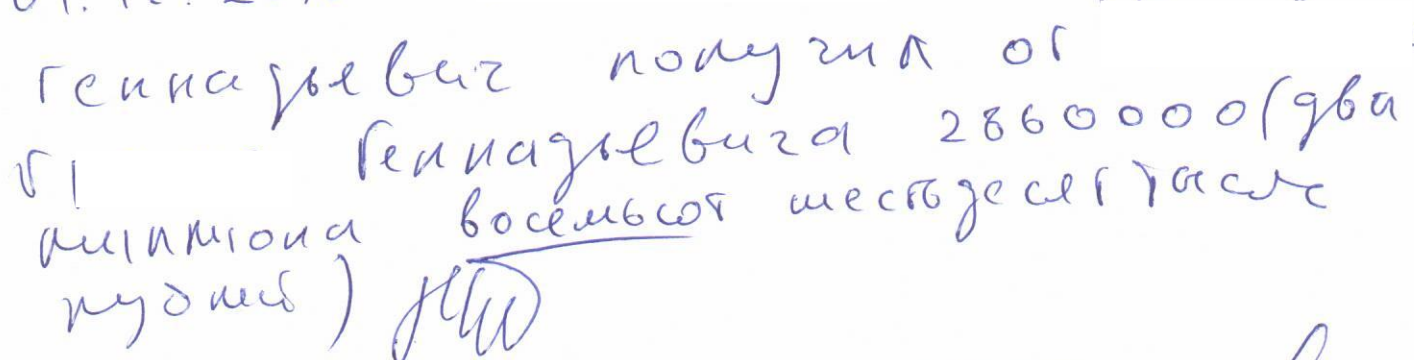 Геннадьевич получил от
Геннадьевича 2860000 (два
миллиона восемьсот шестьдесят тысяч
рублей)